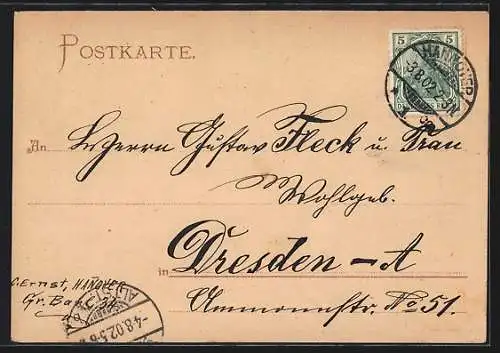 POSTKARTE.
5 5
HANNOVER
3.8.02.
An Herrn Gustav Fleck u. Frau
Wohlgeb.
in Dresden – A
Ammonstr. No 51.
C. Ernst, HANOVER
Gr. Bar
ALTST.
-4.8.02.5-6